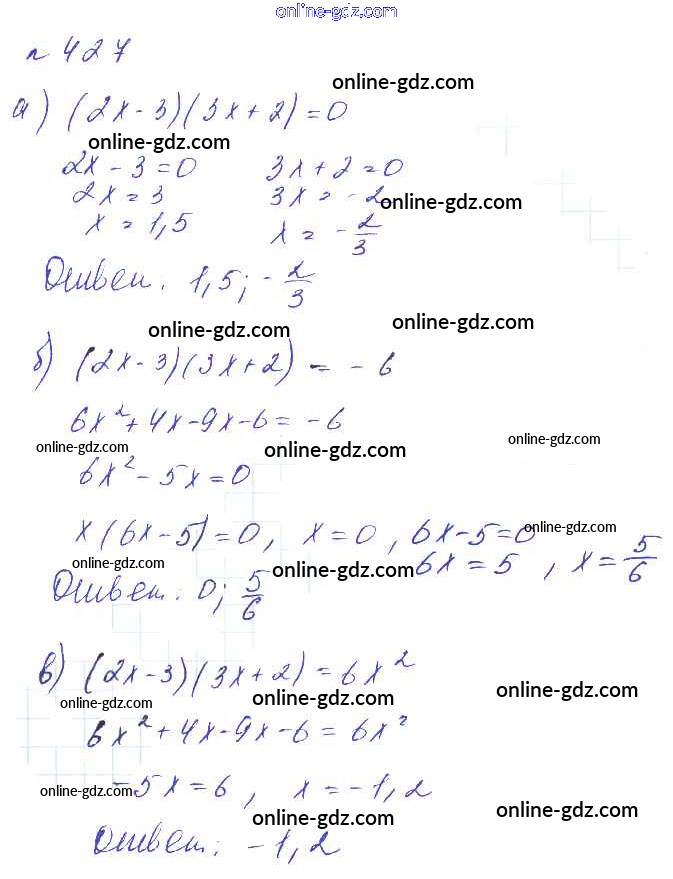 online-gdz.com
№ 427
online-gdz.com
а) (2x - 3)(3x + 2) = 0
online-gdz.com
2x - 3 = 0 3x + 2 = 0
2x = 3 3x = - 2
online-gdz.com
x = 1,5 x = - 2/3
Ответ: 1,5; - 2/3
online-gdz.com online-gdz.com
б) (2x - 3)(3x + 2) = - 6
6x² + 4x - 9x - 6 = - 6
online-gdz.com online-gdz.com online-gdz.com
6x² - 5x = 0
x(6x - 5) = 0, x = 0, 6x - 5 = 0
online-gdz.com
6x = 5, x = 5/6
online-gdz.com online-gdz.com
Ответ: 0; 5/6
в) (2x - 3)(3x + 2) = 6x²
online-gdz.com online-gdz.com online-gdz.com
6x² + 4x - 9x - 6 = 6x²
-5x = 6, x = -1,2
online-gdz.com online-gdz.com online-gdz.com
Ответ: -1,2